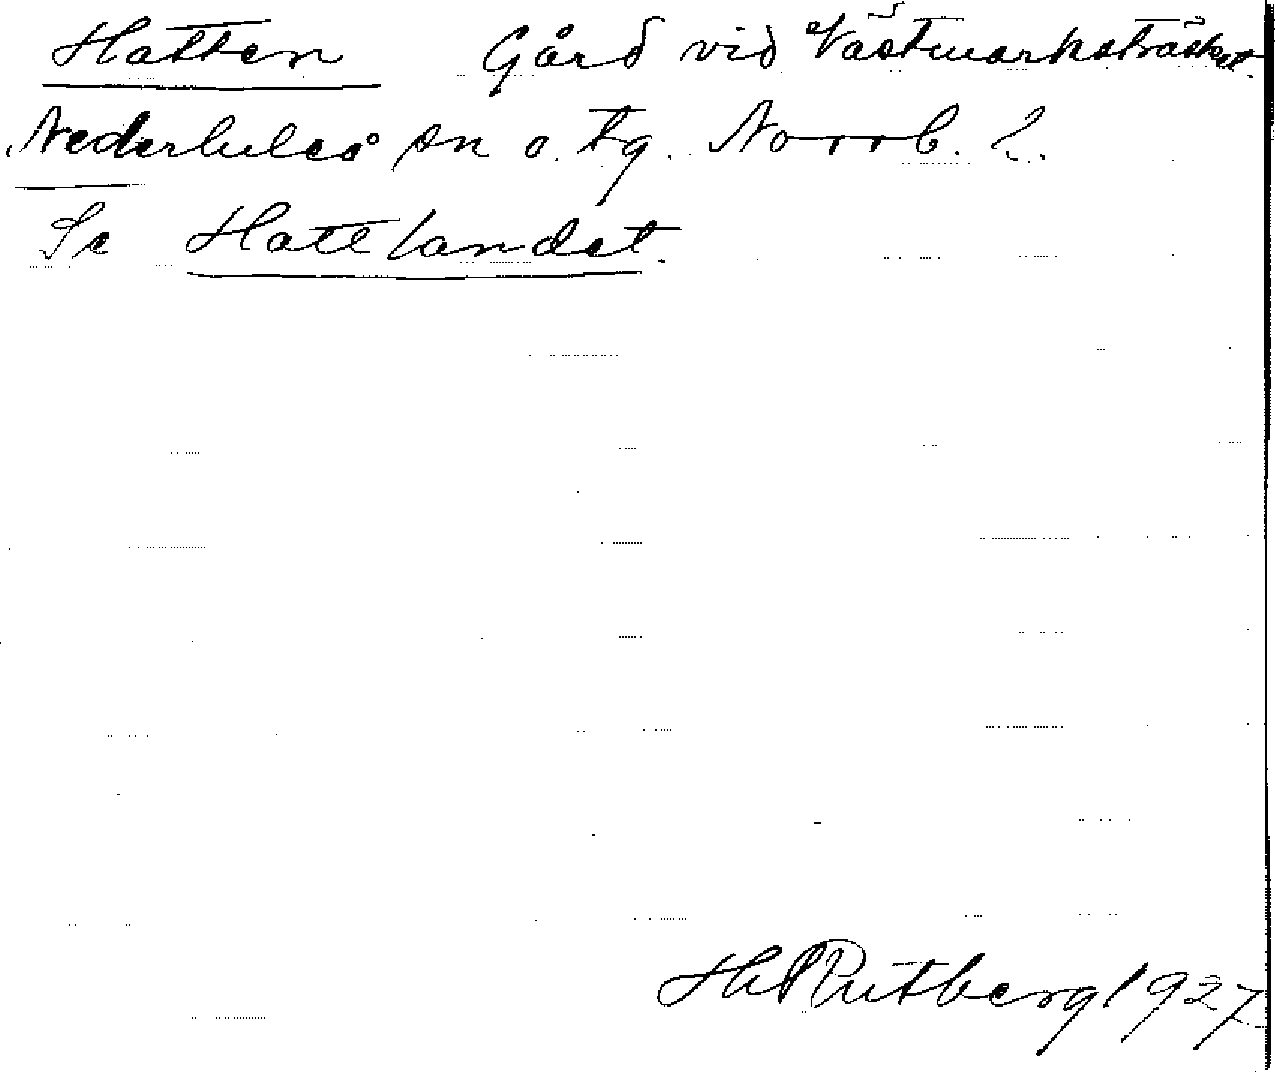 Hatten Gård vid Västmarksträsket.
Nederluleå sn o. tg. Norrb. l.
Se Hattlandet.
Hl Rutberg 1927